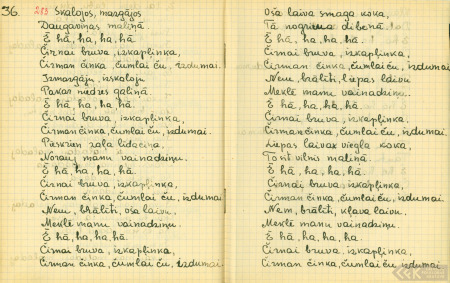 36. 283 Skalojos, mazgājos
Daugaviņas maliņā
E hā, ha, hā.
Čirnai bruva, izkapļinka,
Čirman činka, čumlai ču, izdumai.
Izmazgāju, izskaloju
Pakar niedres galiņā.
E hā, ha, ha, hā.
Čirnai bruva, izkapļinka,
Čirman činka, čumlai ču, izdumai.
Pieskrien zaļa līdaciņa,
Norauj manu vainadziņu.
E hā, ha, ha, hā.
Čirnai bruva, izkapļinka,
Čirman činka, čumlai ču, izdumai
Ņem, brālīt, oša laivu.
Meklē manu vainadziņu.
E hā, ha, ha, hā.
Čirnai bruva, izkapļinka,
Čirman činka, čumlai ču, izdumai
Oša laiva smaga koka,
Tā nogrima dibenā.
E hā, ha, hā, hā.
Čirnai bruva, izkapļinka,
Čirman činka, čumlai ču, izdumai
Ņem, brālīt, liepas laivu
Meklē manu vainadziņu.
E hā, ha, ha, hā.
Čirnai bruva, izkapļinka.
Čirman činka, čumlai ču, izdumai.
Liepas laiva viegla koka,
To sit vilnis maliņā.
E hā, ha, ha, hā.
Čirnai bruva, izkapļinka,
Čirman činka, čumlai ču, izdumai.
Ņem, brālīt, kļava laivu.
Meklē manu vainadziņu.
E hā, ha, ha, ha.
Čirnai bruva, izkapļinka,
Čirman činka, čumlai ču, izdumai